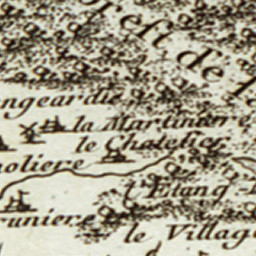 rest de l
ngeardie
la Martiniere
le Chatelier
noliere
l'Etang
runiere
le Village